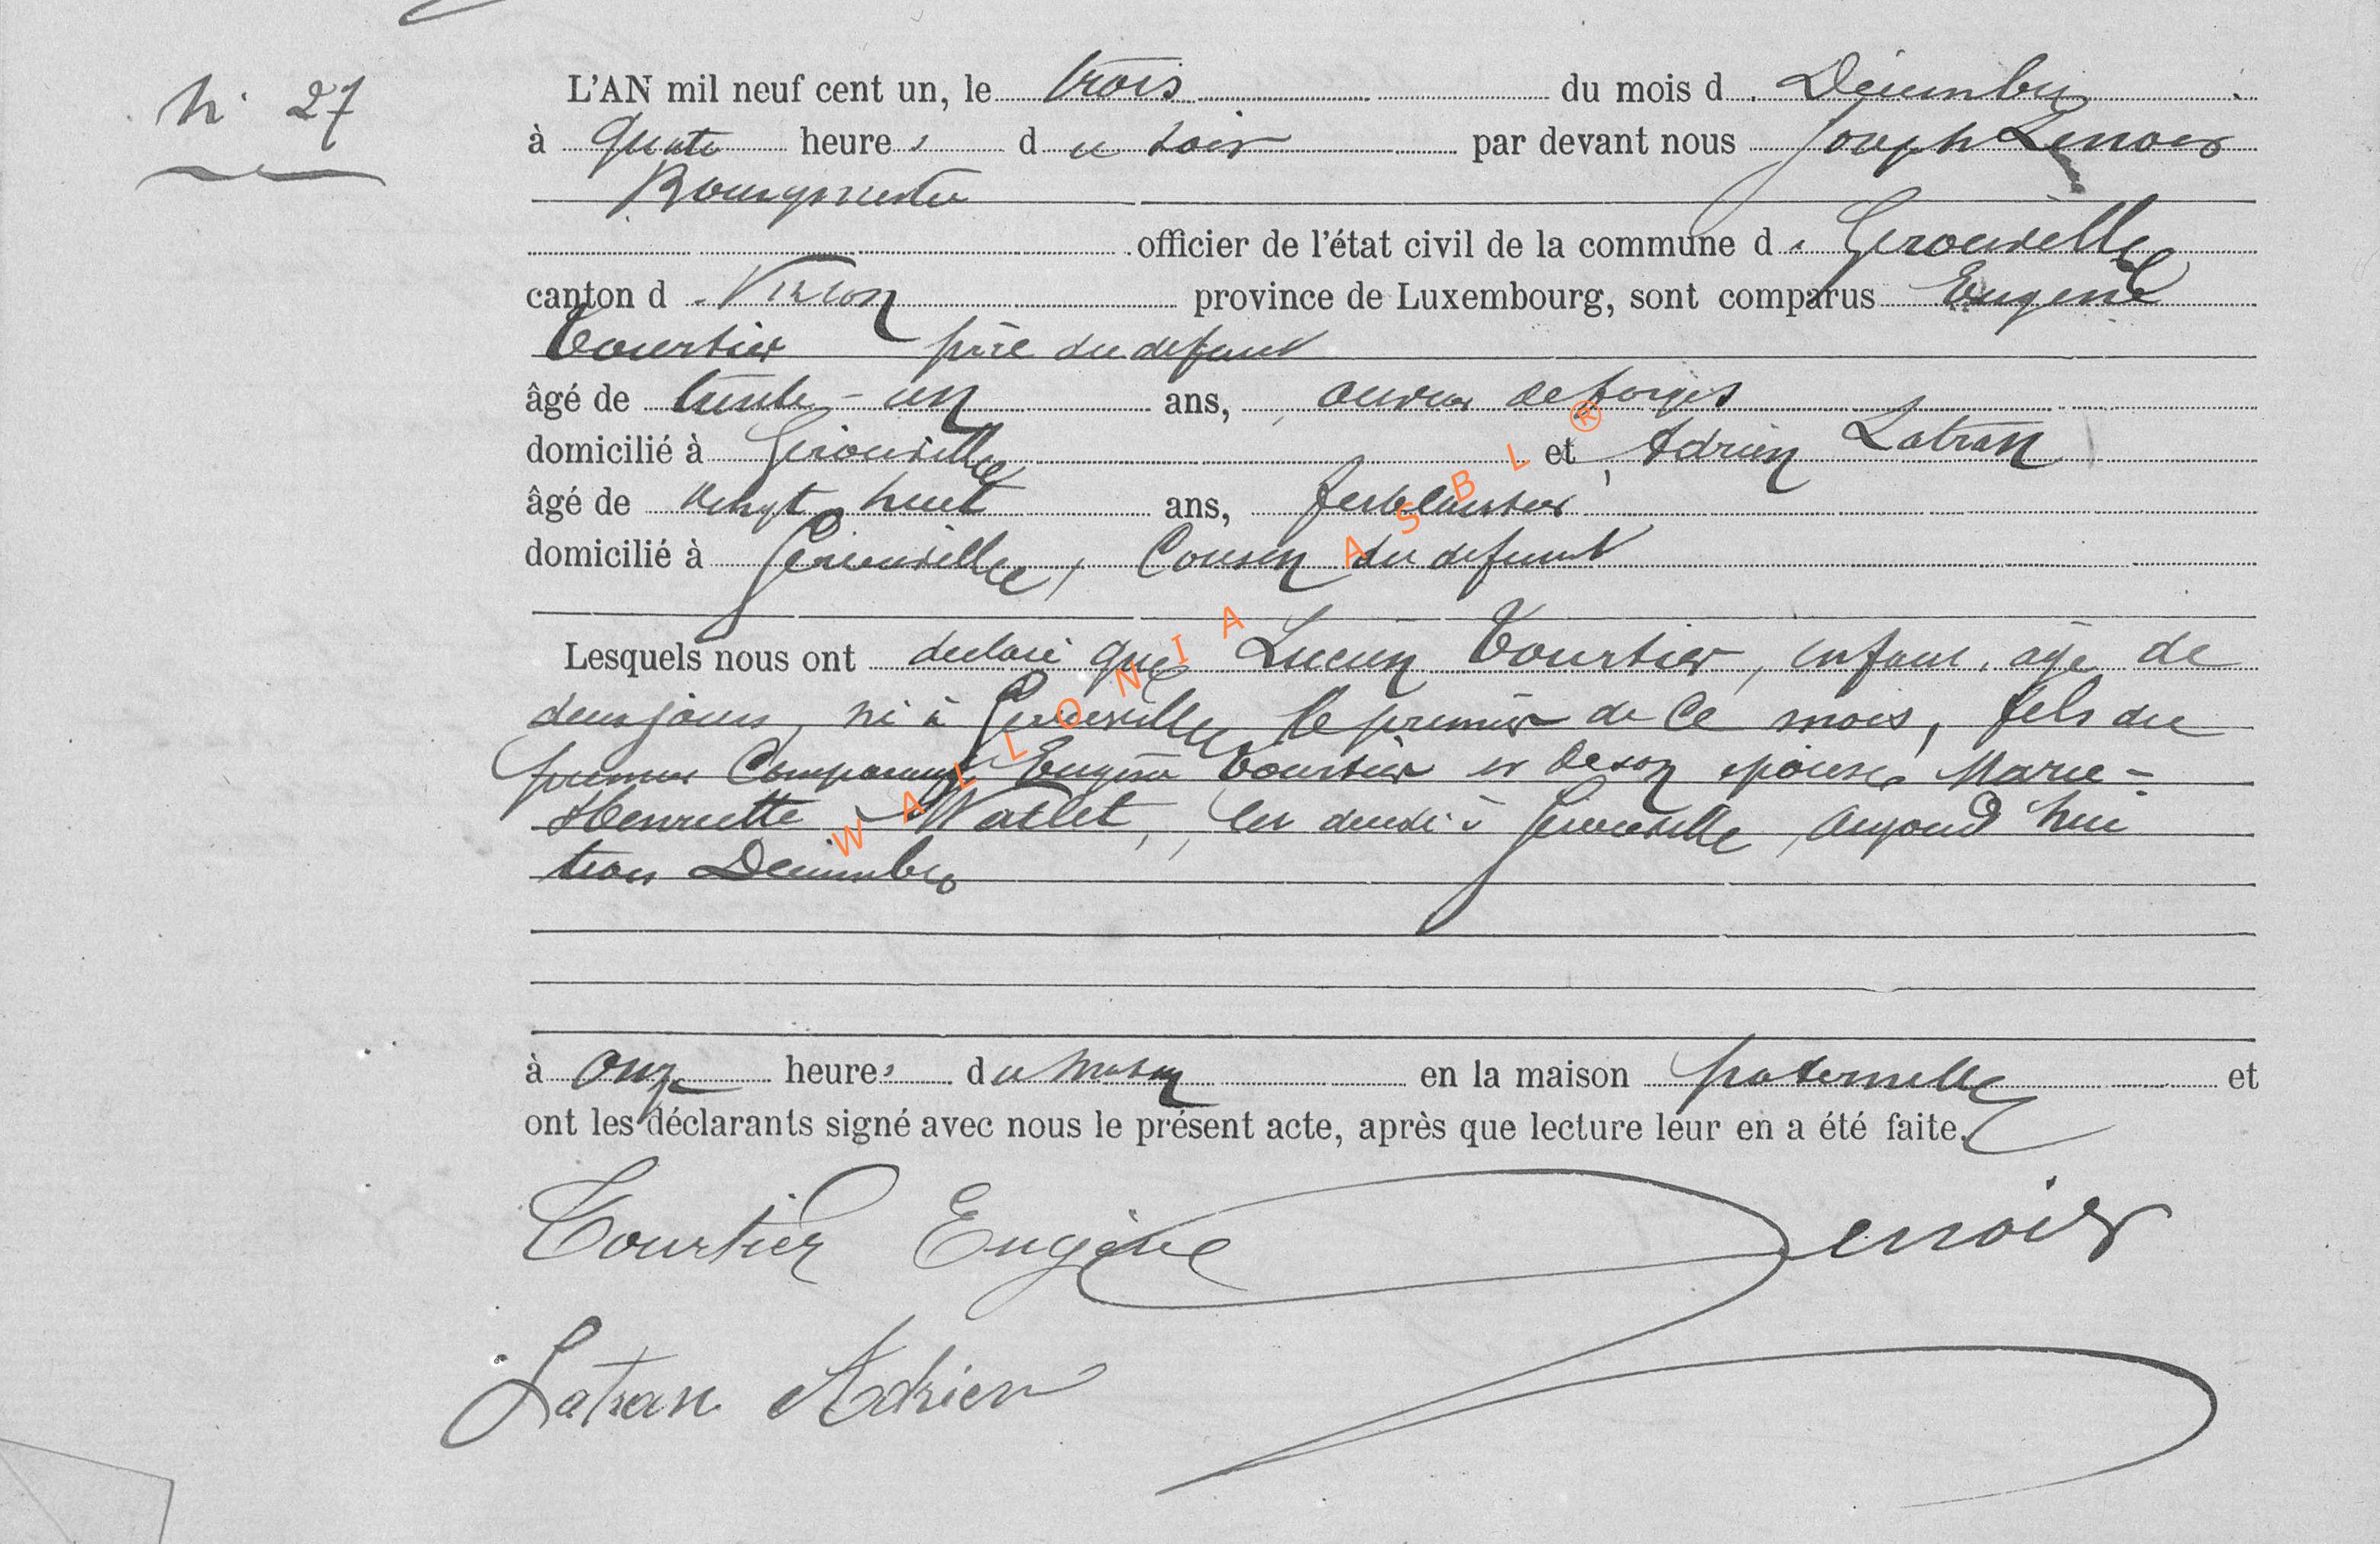 N° 27
L'AN mil neuf cent un, le trois du mois de Décembre
à quatre heures du soir par devant nous Joseph Lenoir
Bourgmestre
officier de l'état civil de la commune de Gérouville
canton de Virton province de Luxembourg, sont comparus Eugène
Courtier père du défunt
âgé de trente-un ans, ouvrier de forges
domicilié à Gérouville et Adrien Latran
âgé de vingt huit ans, ferblantier
domicilié à Gérouville, Cousin du défunt
Lesquels nous ont déclaré que Lucien Courtier, enfant, âgé de
deux jours, né à Gérouville le premier de ce mois, fils du
premier Comparant Eugène Courtier et de son épouse Marie-
Henriette Watlet, décédé à Gérouville, aujourd'hui
trois Décembre
à onze heures du matin en la maison paternelle et
ont les déclarants signé avec nous le présent acte, après que lecture leur en a été faite.
Courtier Eugène Lenoir
Latran Adrien
WALLONIA ASBL ®